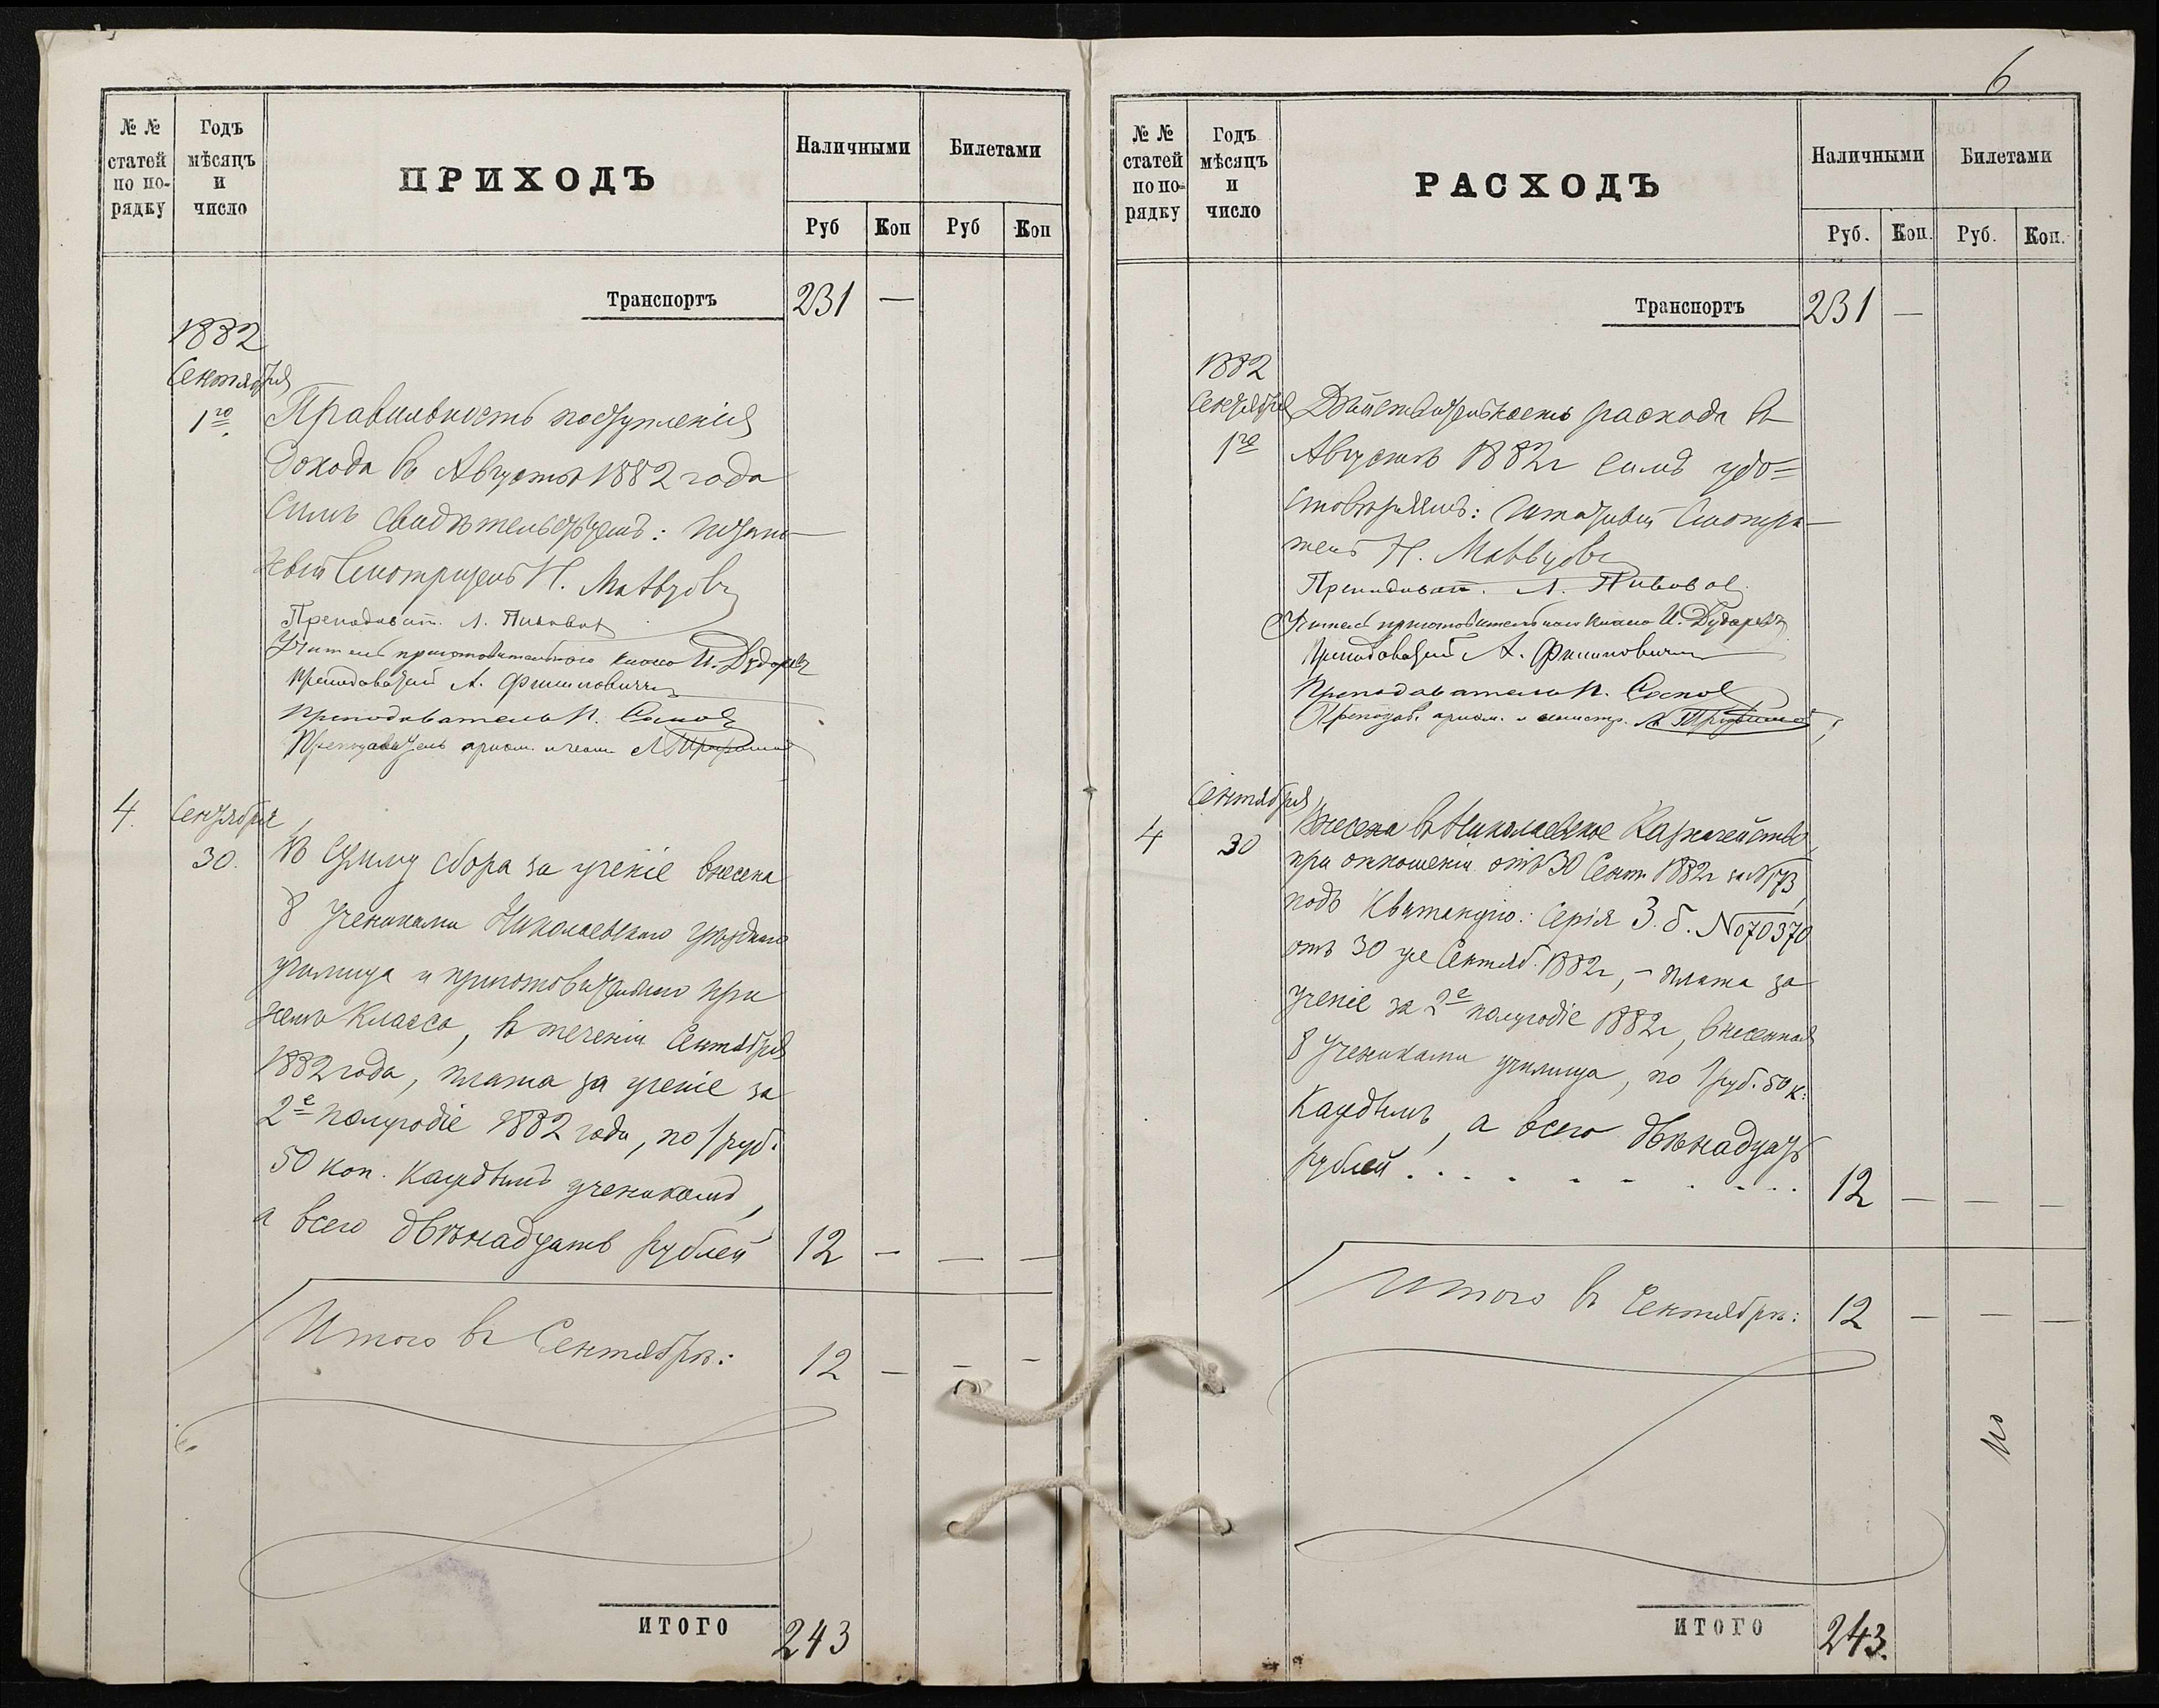 № №
статей
по по-
рядку
Годъ
мѣсяцъ
и
число
ПРИХОДЪ
Наличными
Билетами
Руб
Коп
Руб
Коп
Транспортъ
231 —
1882
Сентября
1го
Правильность поступленія
дохода въ Августѣ 1882 года
симъ свидѣтельствуемъ: Штат-
ный Смотритель Н.
Преподават. Л. Пивовов
Учитель приготовительнаго класса И. Дударевъ
Преподаватель А. Филиповичъ
Преподаватель П.
Преподаватель
4.
Сентября
30.
Въ сумму сбора за ученіе внесена
8 учениками Николаевскаго уѣзднаго
училища и приготовительнаго при
немъ класса, въ теченіи Сентября
1882 года, плата за ученіе за
2е полугодіе 1882 года, по 1 руб.
50 коп. каждымъ ученикомъ,
а всего двѣнадцать рублей
12 — — —
Итого въ Сентябрѣ:
12 — — —
ИТОГО
243
6
№ №
статей
по по-
рядку
Годъ
мѣсяцъ
и
число
РАСХОДЪ
Наличными
Билетами
Руб.
Коп.
Руб.
Коп.
Транспортъ
231 —
1882
Сентября
1го
Дѣйствительность расхода въ
Августѣ 1882 г симъ удо=
стовѣряемъ: Штатный Смотри-
тель Н.
Преподават. Л. Пивовов
Учитель приготовительнаго класса И. Дударевъ
Преподаватель А. Филиповичъ
Преподаватель П.
Преподав.
Сентября
4
30
Внесена въ Николаевское Казначейство,
при отношеніи отъ 30 Сент. 1882 г за № 173,
подъ квитанцію: Серія З. б. № 70370
отъ 30 го Сентяб. 1882 г, — плата за
ученіе за 2е полугодіе 1882 г, внесенная
8 учениками училища, по 1 руб. 50 к.
каждымъ, а всего двѣнадцать
рублей . . . . . . . . .
12 — — —
Итого въ Сентябрѣ:
12 — — —
ИТОГО
243.